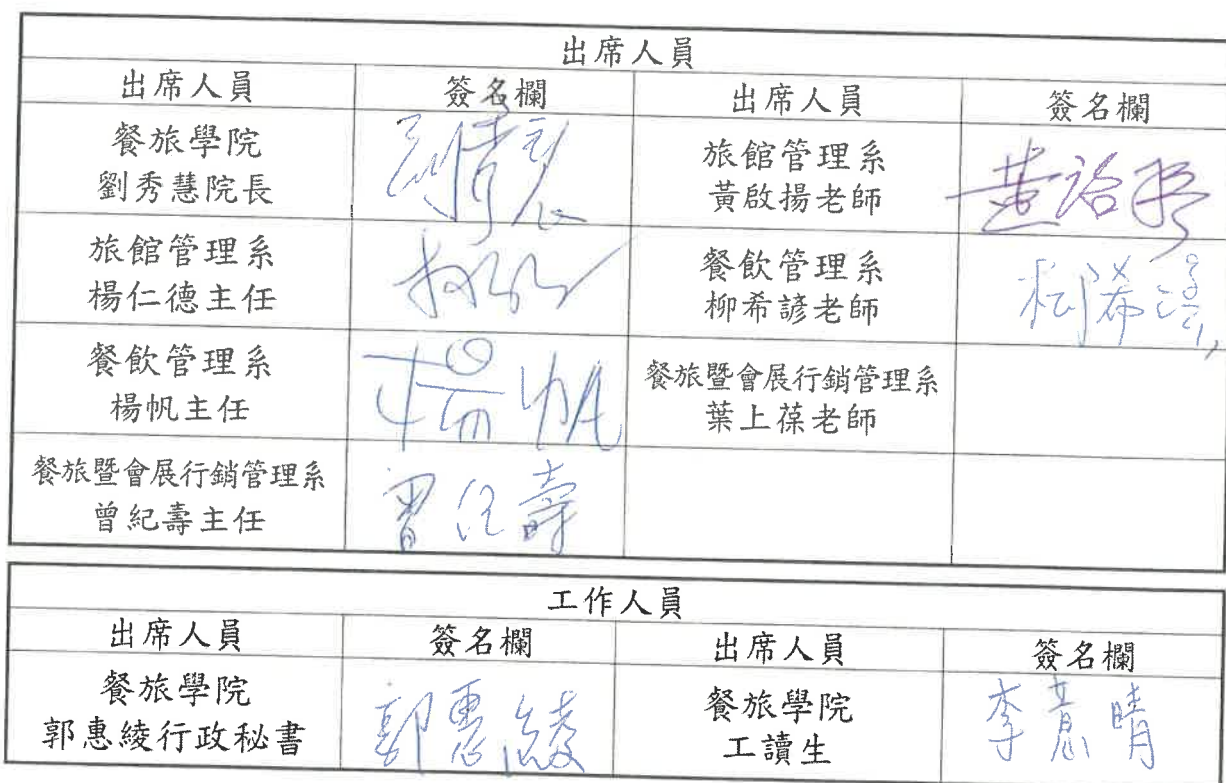 出席人員
出席人員 簽名欄 出席人員 簽名欄
餐旅學院
劉秀慧院長
旅館管理系
黃啟揚老師
旅館管理系
楊仁德主任
餐飲管理系
柳希諺老師
柳希諺
餐飲管理系
楊帆主任
楊帆
餐旅暨會展行銷管理系
葉上葆老師
餐旅暨會展行銷管理系
曾紀壽主任
曾紀壽
工作人員
出席人員 簽名欄 出席人員 簽名欄
餐旅學院
郭惠綾行政秘書
郭惠綾
餐旅學院
工讀生
李意晴